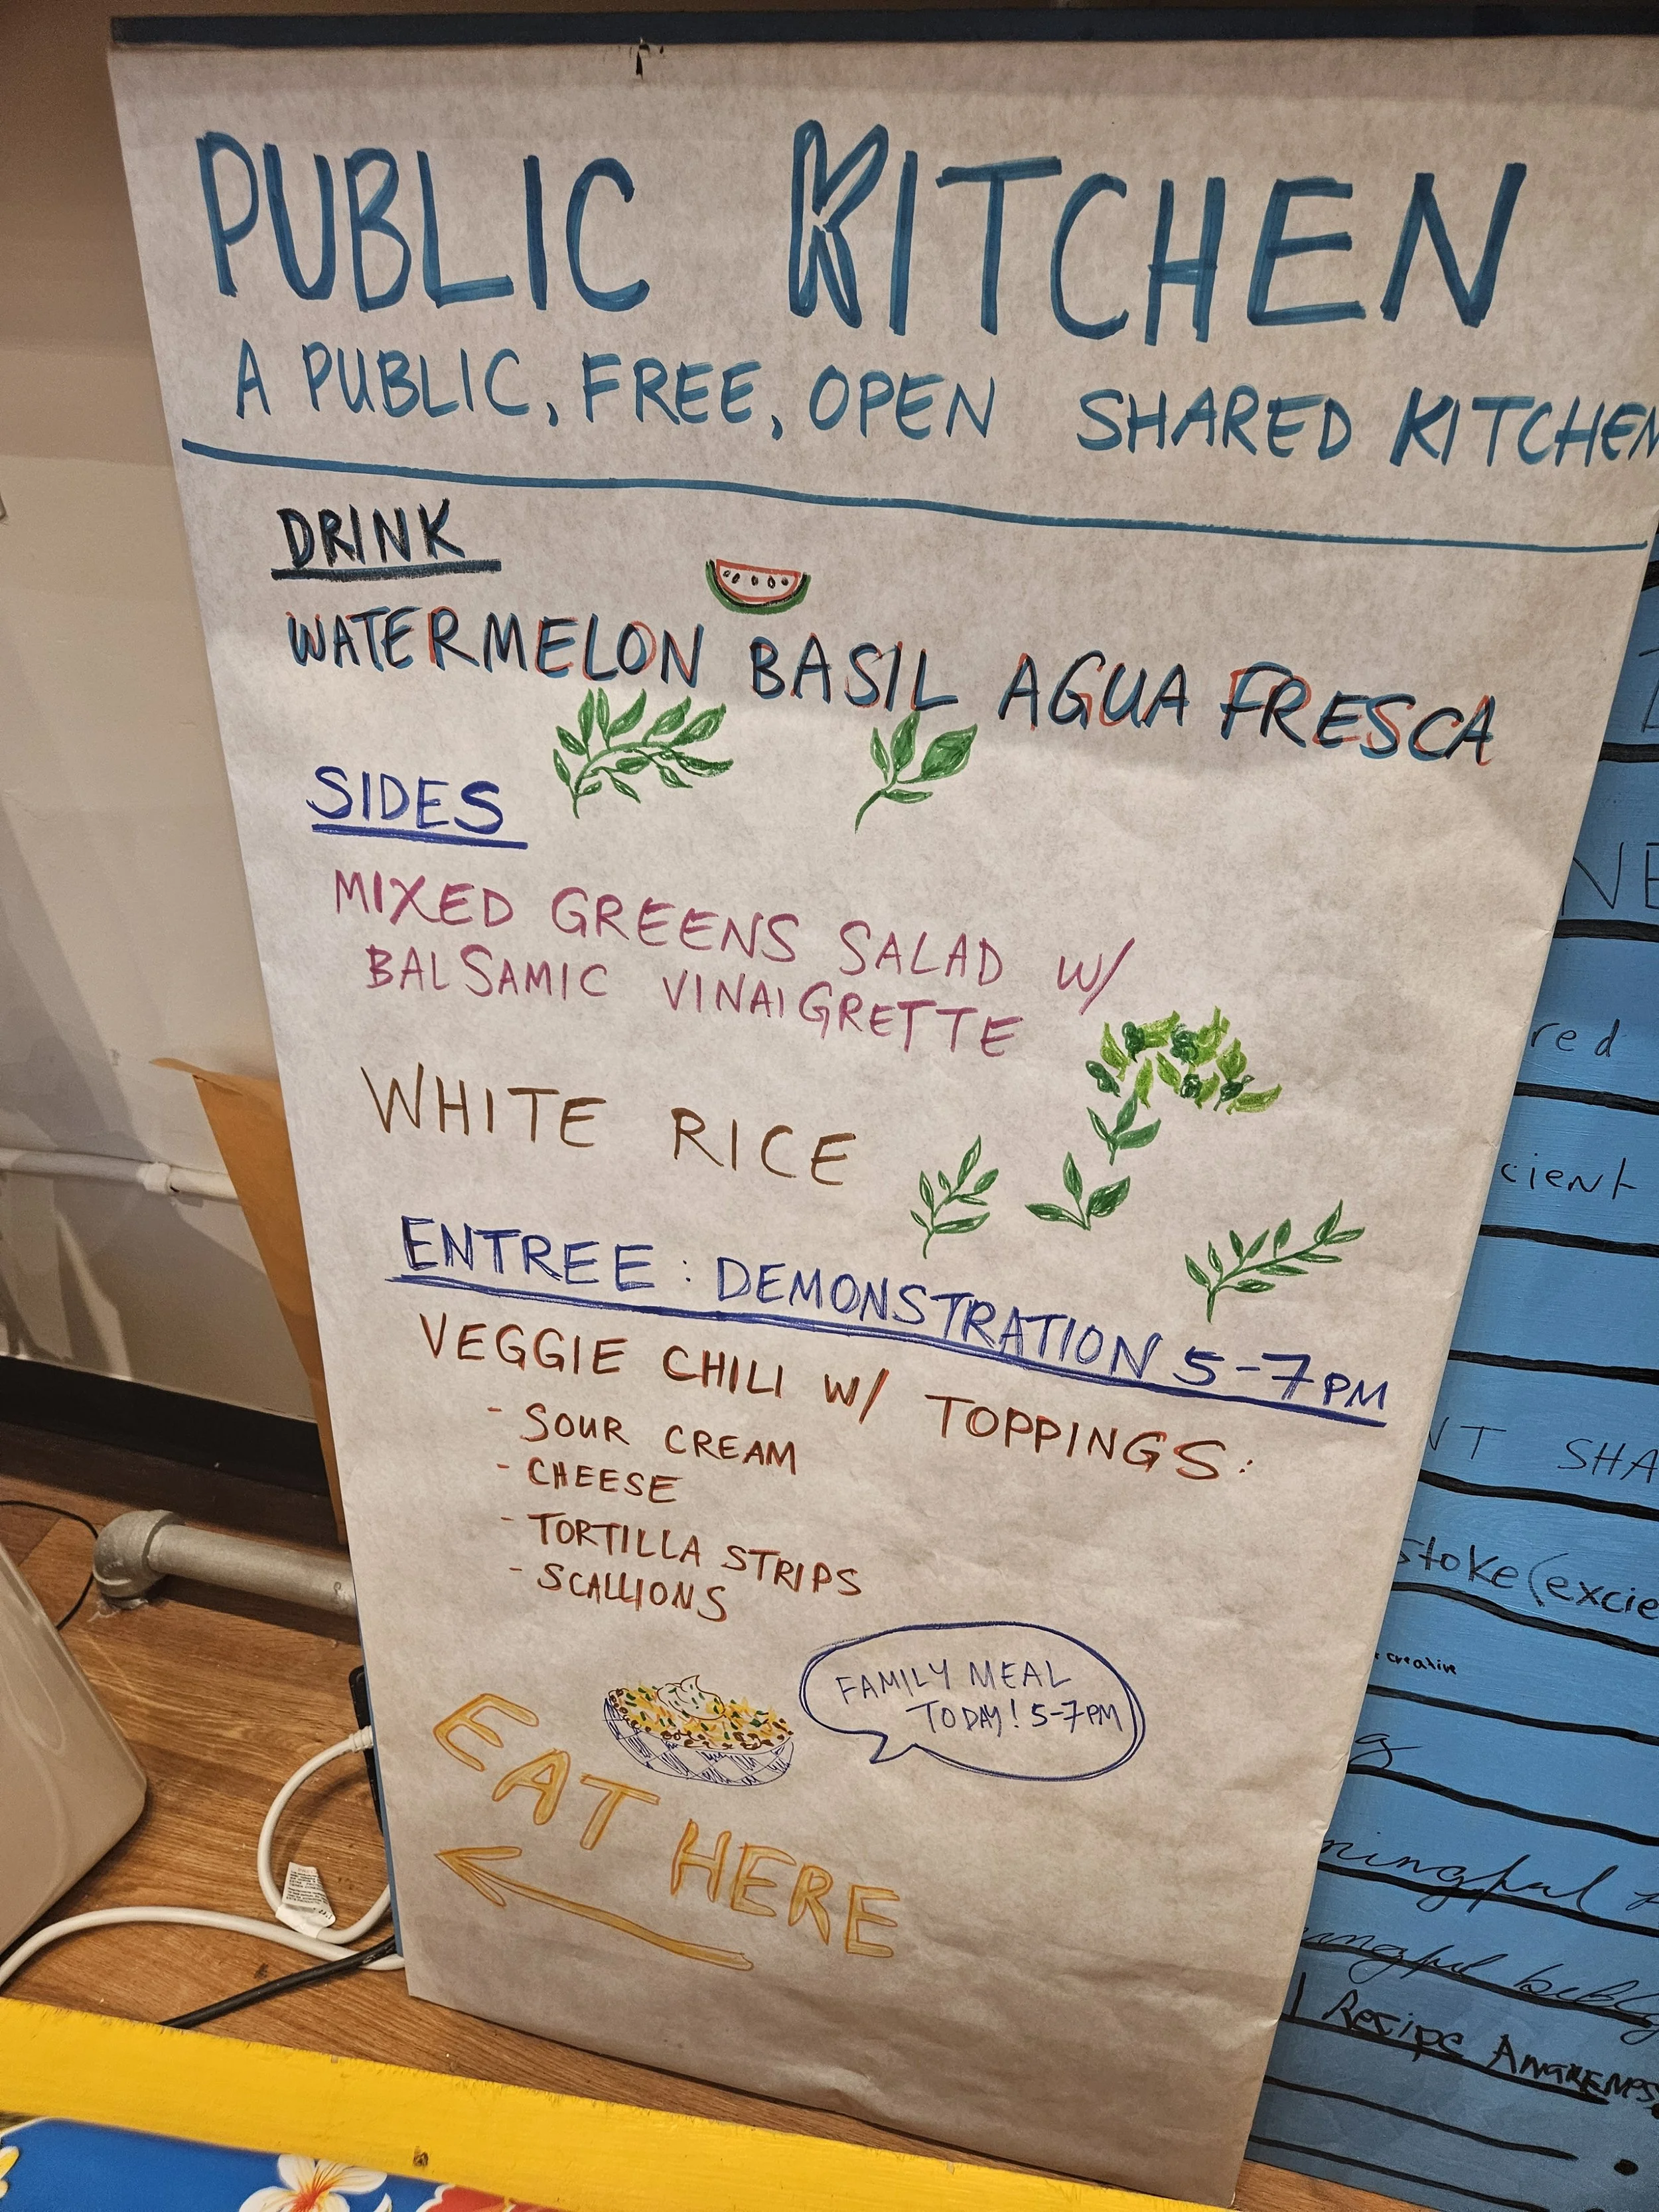 PUBLIC KITCHEN
A PUBLIC, FREE, OPEN SHARED KITCHEN
DRINK
WATERMELON BASIL AGUA FRESCA
SIDES
MIXED GREENS SALAD W/
BALSAMIC VINAIGRETTE
WHITE RICE
ENTREE: DEMONSTRATION 5-7PM
VEGGIE CHILI W/ TOPPINGS:
- SOUR CREAM
- CHEESE
- TORTILLA STRIPS
- SCALLIONS
FAMILY MEAL
TODAY! 5-7PM
EAT HERE
red
cient
NT SHA
stoke (excie
creative
g
ningful
Recipe AWARENESS